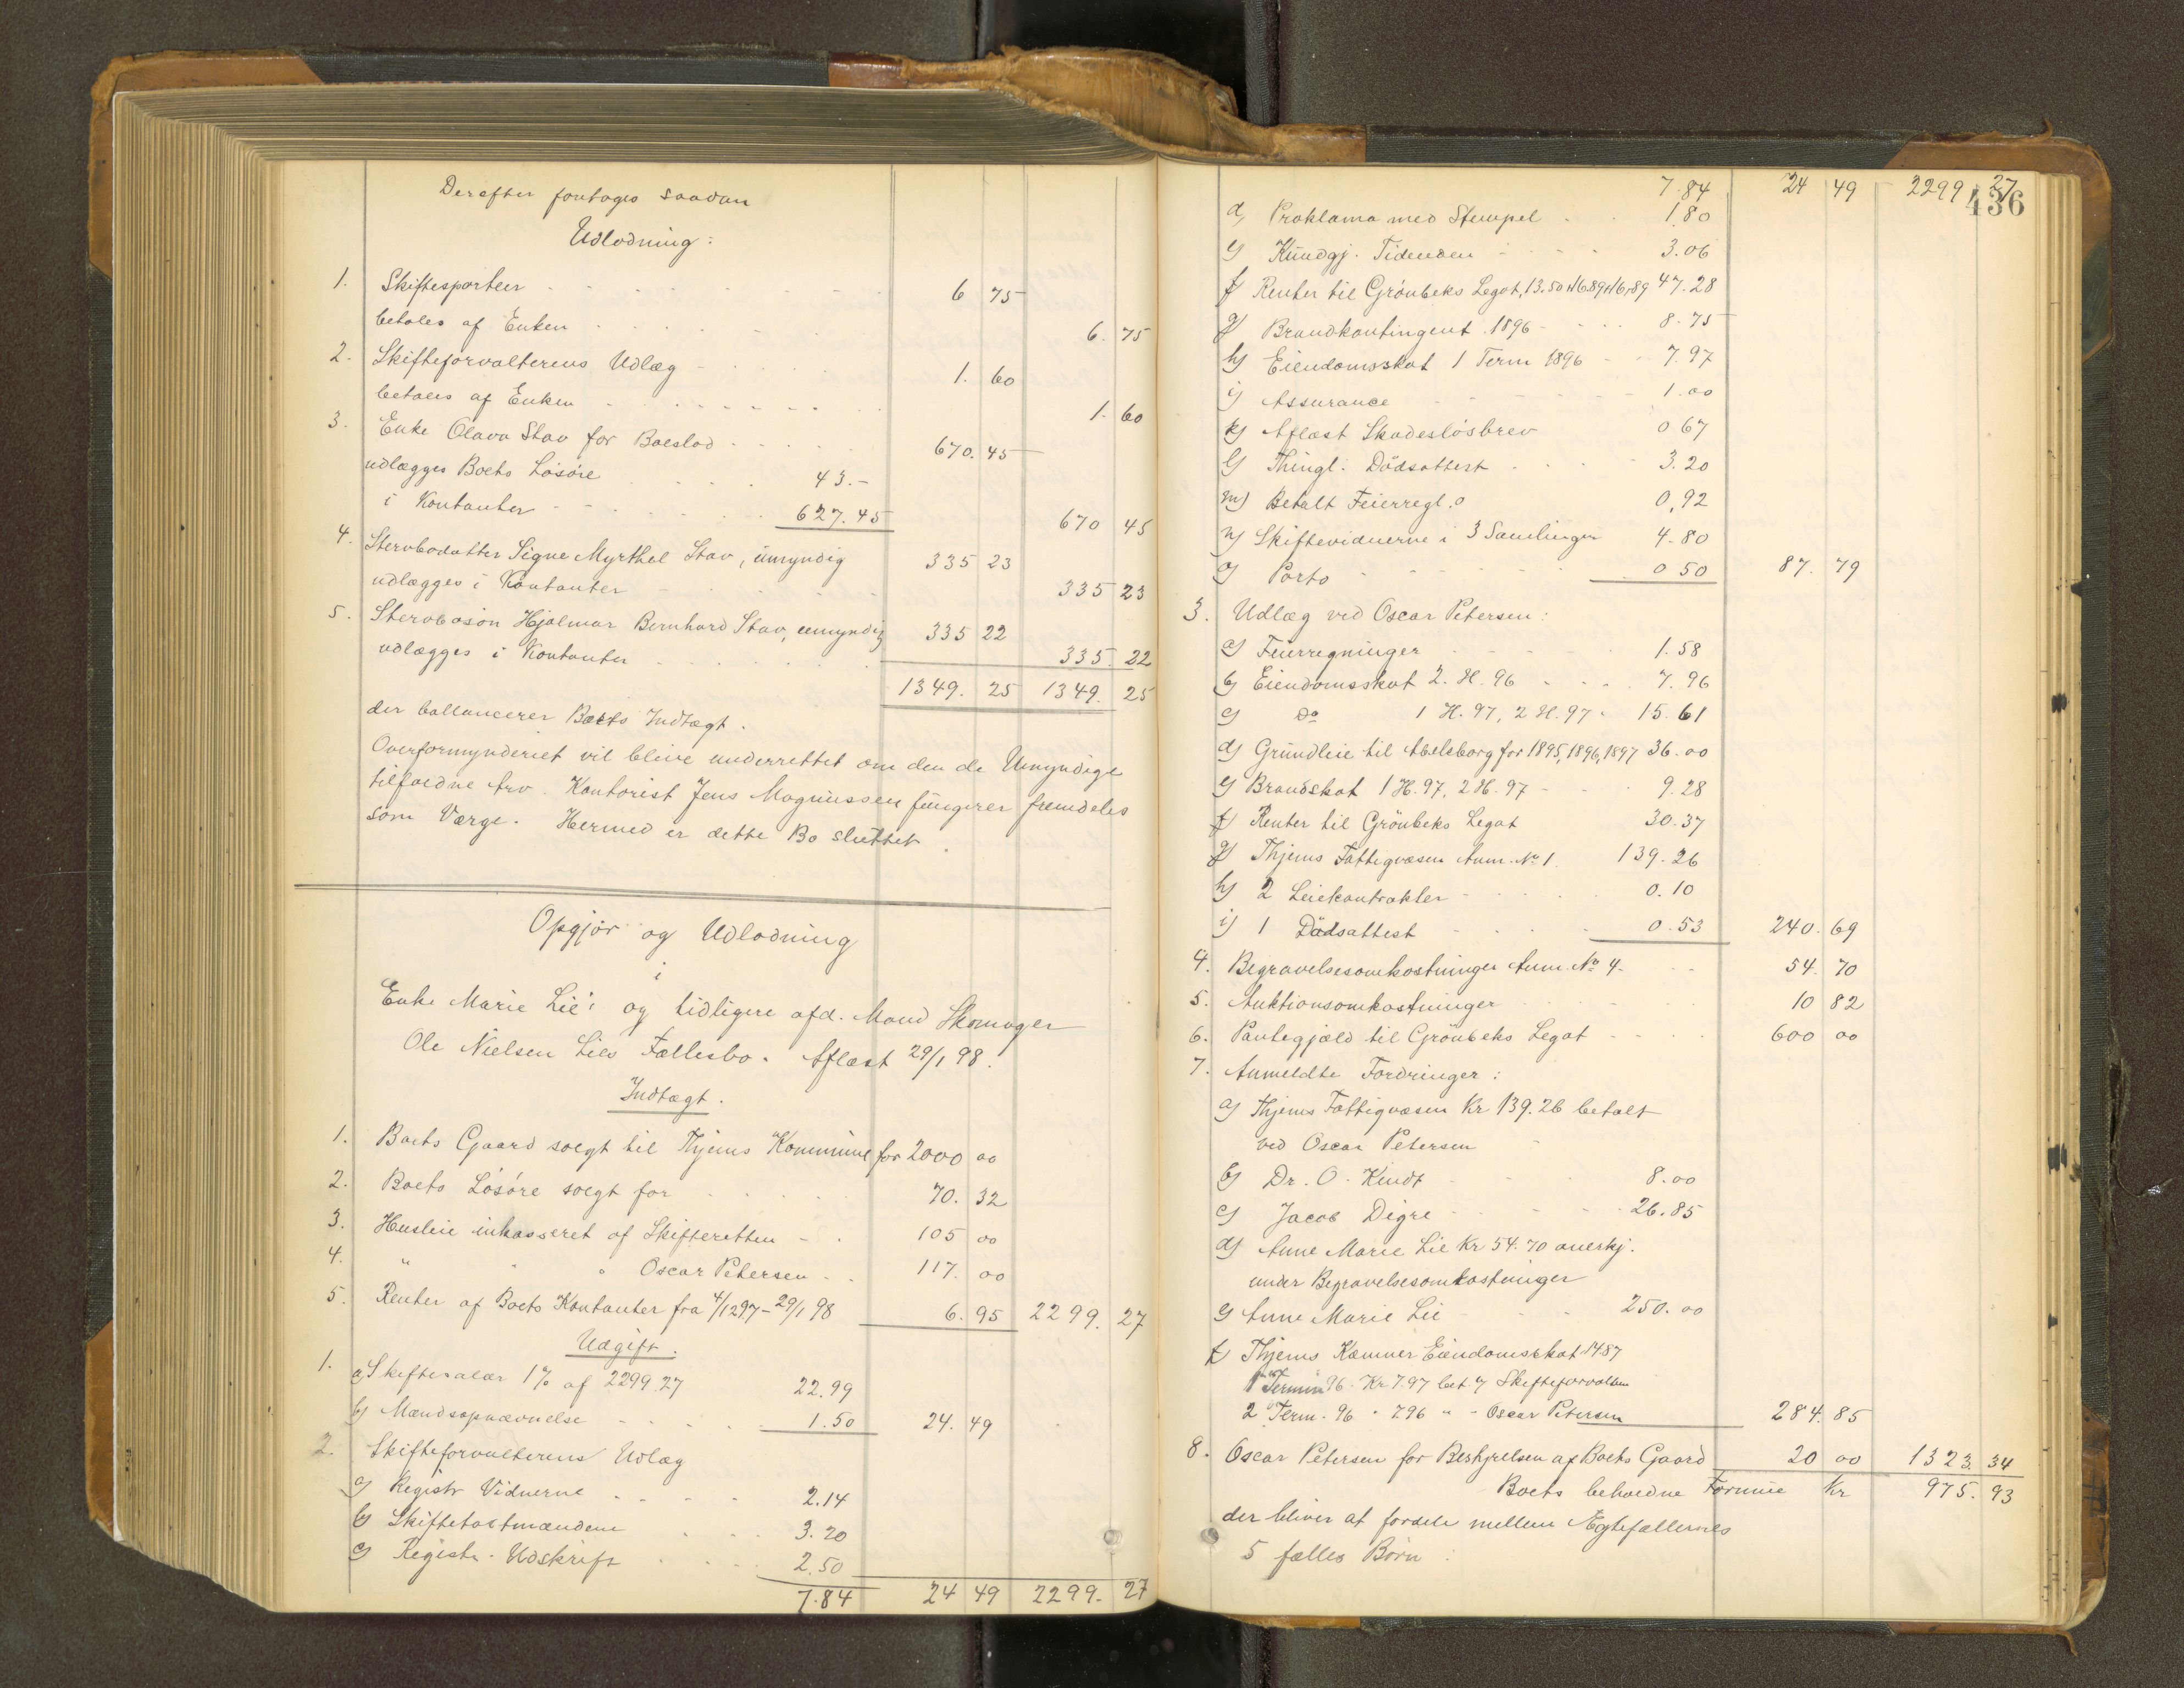 Derefter foretages saadan
Udlodning:
1. Skiftesportler 6 75
betales af Enken 6. 75
2. Skifteforvalterens Udlæg 1. 60
betales af Enken 1. 60
3. Enke Olava Stav for Boeslod 670. 45
udlægges Boets Løsøre 43.-
i Kontanter 627.45 670 45
4. Stervbodatter Signe Myrthel Stav, umyndig 335 23
udlægges i Kontanter 335 23
5. Stervbosøn Hjalmar Bernhard Stav, umyndig 335 22
udlægges i Kontanter 335. 22
1349. 25 1349. 25
der ballancerer Boets Indtægt.
Overformynderiet vil blive underrettet om den de Umyndige
tilfaldne Arv. Kontorist Jens Magnussen fungerer fremdeles
som Værge. Hermed er dette Bo sluttet.
Opgjør og Udlodning
i
Enke Marie Lie's og tidligere afd. Mand Skomager
Ole Nielsen Lies Fællesbo. Aflæst 29/1 98.
Indtægt.
1. Boets Gaard solgt til Thjems Kommune for 2000 00
2. Boets Løsøre solgt for 70. 32
3. Husleie inkasseret af Skifteretten 105 00
4. " " " Oscar Petersen 117. 00
5. Renter af Boets Kontanter fra 4/12 97 - 29/1 98 6. 95 2299. 27
Udgift.
1. a) Skiftesalær 1% af 2299.27 22.99
b) Mændsopnævnelse 1.50 24. 49
2. Skifteforvalterens Udlæg
a) Registr Vidnerne 2.14
b) Skiftetaxtmændene 3.20
c) Registr. Udskrift 2.50
7.84 24 49 2299. 27
436
7.84 24 49 2299 27
d) Proklama med Stempel 1.80
e) Kundgj. Tidenden 3.06
f) Renter til Grønbeks Legat, 13.50+16.89+16,89 47.28
g) Brandkontingent 1896 8.75
h) Eiendomsskat 1 Term 1896 7.97
i) Assurance 1.00
k) Aflæst Skadesløsbrev 0 67
l) Thingl. Dødsattest 3.20
m) Betalt Feierregl. 0,92
n) Skiftevidnerne i 3 Samlinger 4.80
o) Porto 0 50 87. 79
3. Udlæg ved Oscar Petersen:
a) Feierregninger 1.58
b) Eiendomsskat 2. H. 96 7.96
c) do 1 H. 97, 2 H. 97 15.61
d) Grundleie til Abelsborg for 1895, 1896, 1897 36.00
e) Brandskat 1 H. 97, 2 H. 97 9.28
f) Renter til Grönbeks Legat 30.37
g) Thjems Fattigvæsen Anm. No 1. 139.26
h) 2 Leiekontrakter 0.10
i) 1 Dødsattest 0.53 240. 69
4. Begravelsesomkostninger Anm. No 4. 54. 70
5. Auktionsomkostninger 10 82
6. Pantegjæld til Grönbeks Legat 600 00
7. Anmeldte Fordringer:
a) Thjems Fattigvæsen Kr 139.26 betalt
ved Oscar Petersen
b) Dr. O. Kindt 8.00
c) Jacob Digre 26.85
d) Anne Marie Lie Kr 54.70 anerkj.
under Begravelsesomkostninger
e) Anne Marie Lie 250.00
f) Thjems Kæmner Eiendomsskat 1487
1 Termin 96 Kr 7.97 bet. af Skifteforvalteren
2 Term. 96 " 7.96 " " Oscar Petersen 284. 85
8. Oscar Petersen for Bestyrelsen af Boets Gaard 20 00 1323. 34
Boets beholdne Formue Kr 975. 93
der bliver at fordele mellem Ægtefællernes
5 fælles Børn: